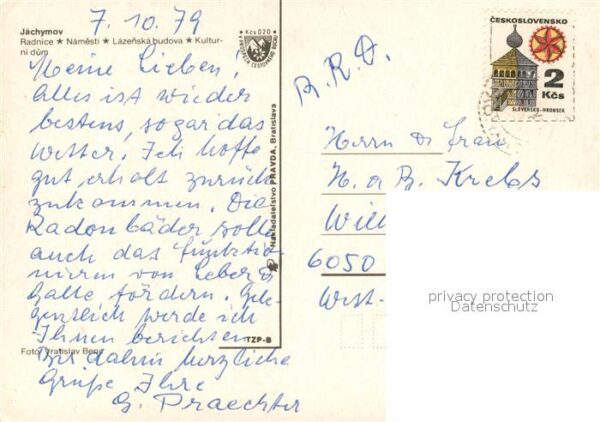 7.10.79
Jáchymov
Radnice ★ Náměstí ★ Lázeňská budova ★ Kultur-
ní dům
Kčs 0,20
Meine Lieben!
Alles ist wieder
bestens, sogar das
Wetter. Ich hoffe
gut erholt zurück
zukommen. Die
Radonbäder solle
auch das funktio-
nieren von Leber &
Galle fördern. Gele-
gentlich werde ich
Ihnen berichten
Bis dahin herzliche
Grüße Ihre
G. Praechter
Foto Vratislav Beng
Nakladatelstvo PRAVDA, Bratislava
TZP-B
ČESKOSLOVENSKO
2
Kčs
SLOVENSKO-HRONSEK
B.R.D.
Herrn & Frau
H. a B. Krebs
Will
6050
West-
privacy protection
Datenschutz